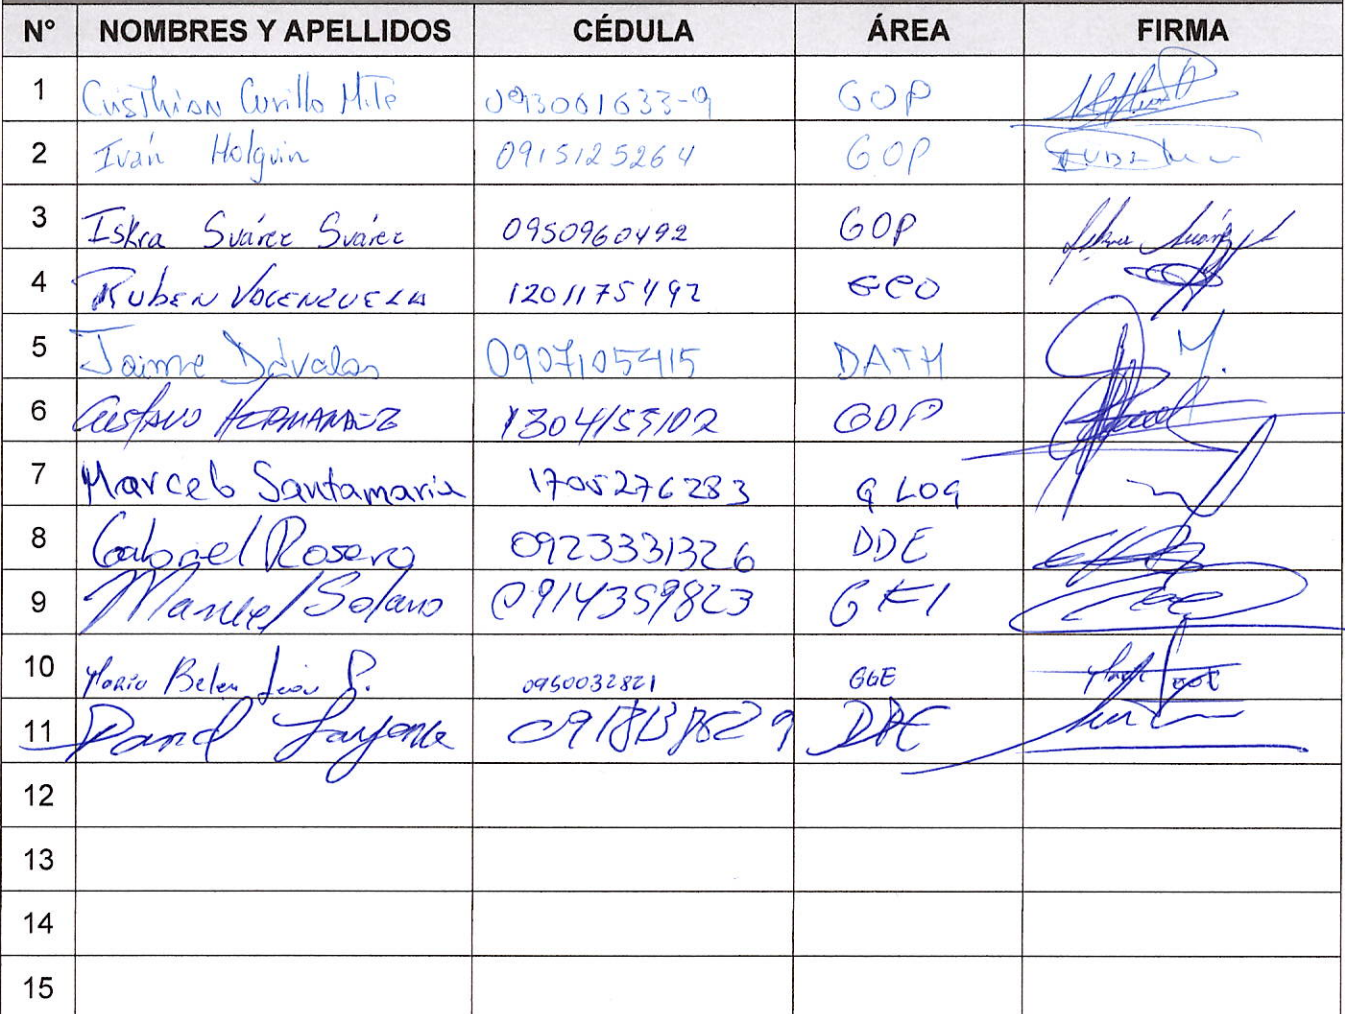 N° NOMBRES Y APELLIDOS CÉDULA ÁREA FIRMA
1 Cristhian Curillo Mite 093061633-9 GOP
2 Iván Holguin 0915125264 GOP
3 Iskra Suárez Suárez 0950960492 GOP Iskra Suárez
4 RUBEN VALENZUELA 1201175492 GCO
5 Jaime Dávalos 0907105415 DATH
6 GUSTAVO HERNANDEZ 1304155102 GOP
7 Marcelo Santamaria 1705276283 G LOG
8 Gabriel Rosero 0923331326 DDE
9 Manuel Solano 0914359823 GEI
10 María Belen León P. 0950032821 GGE
11
12
13
14
15